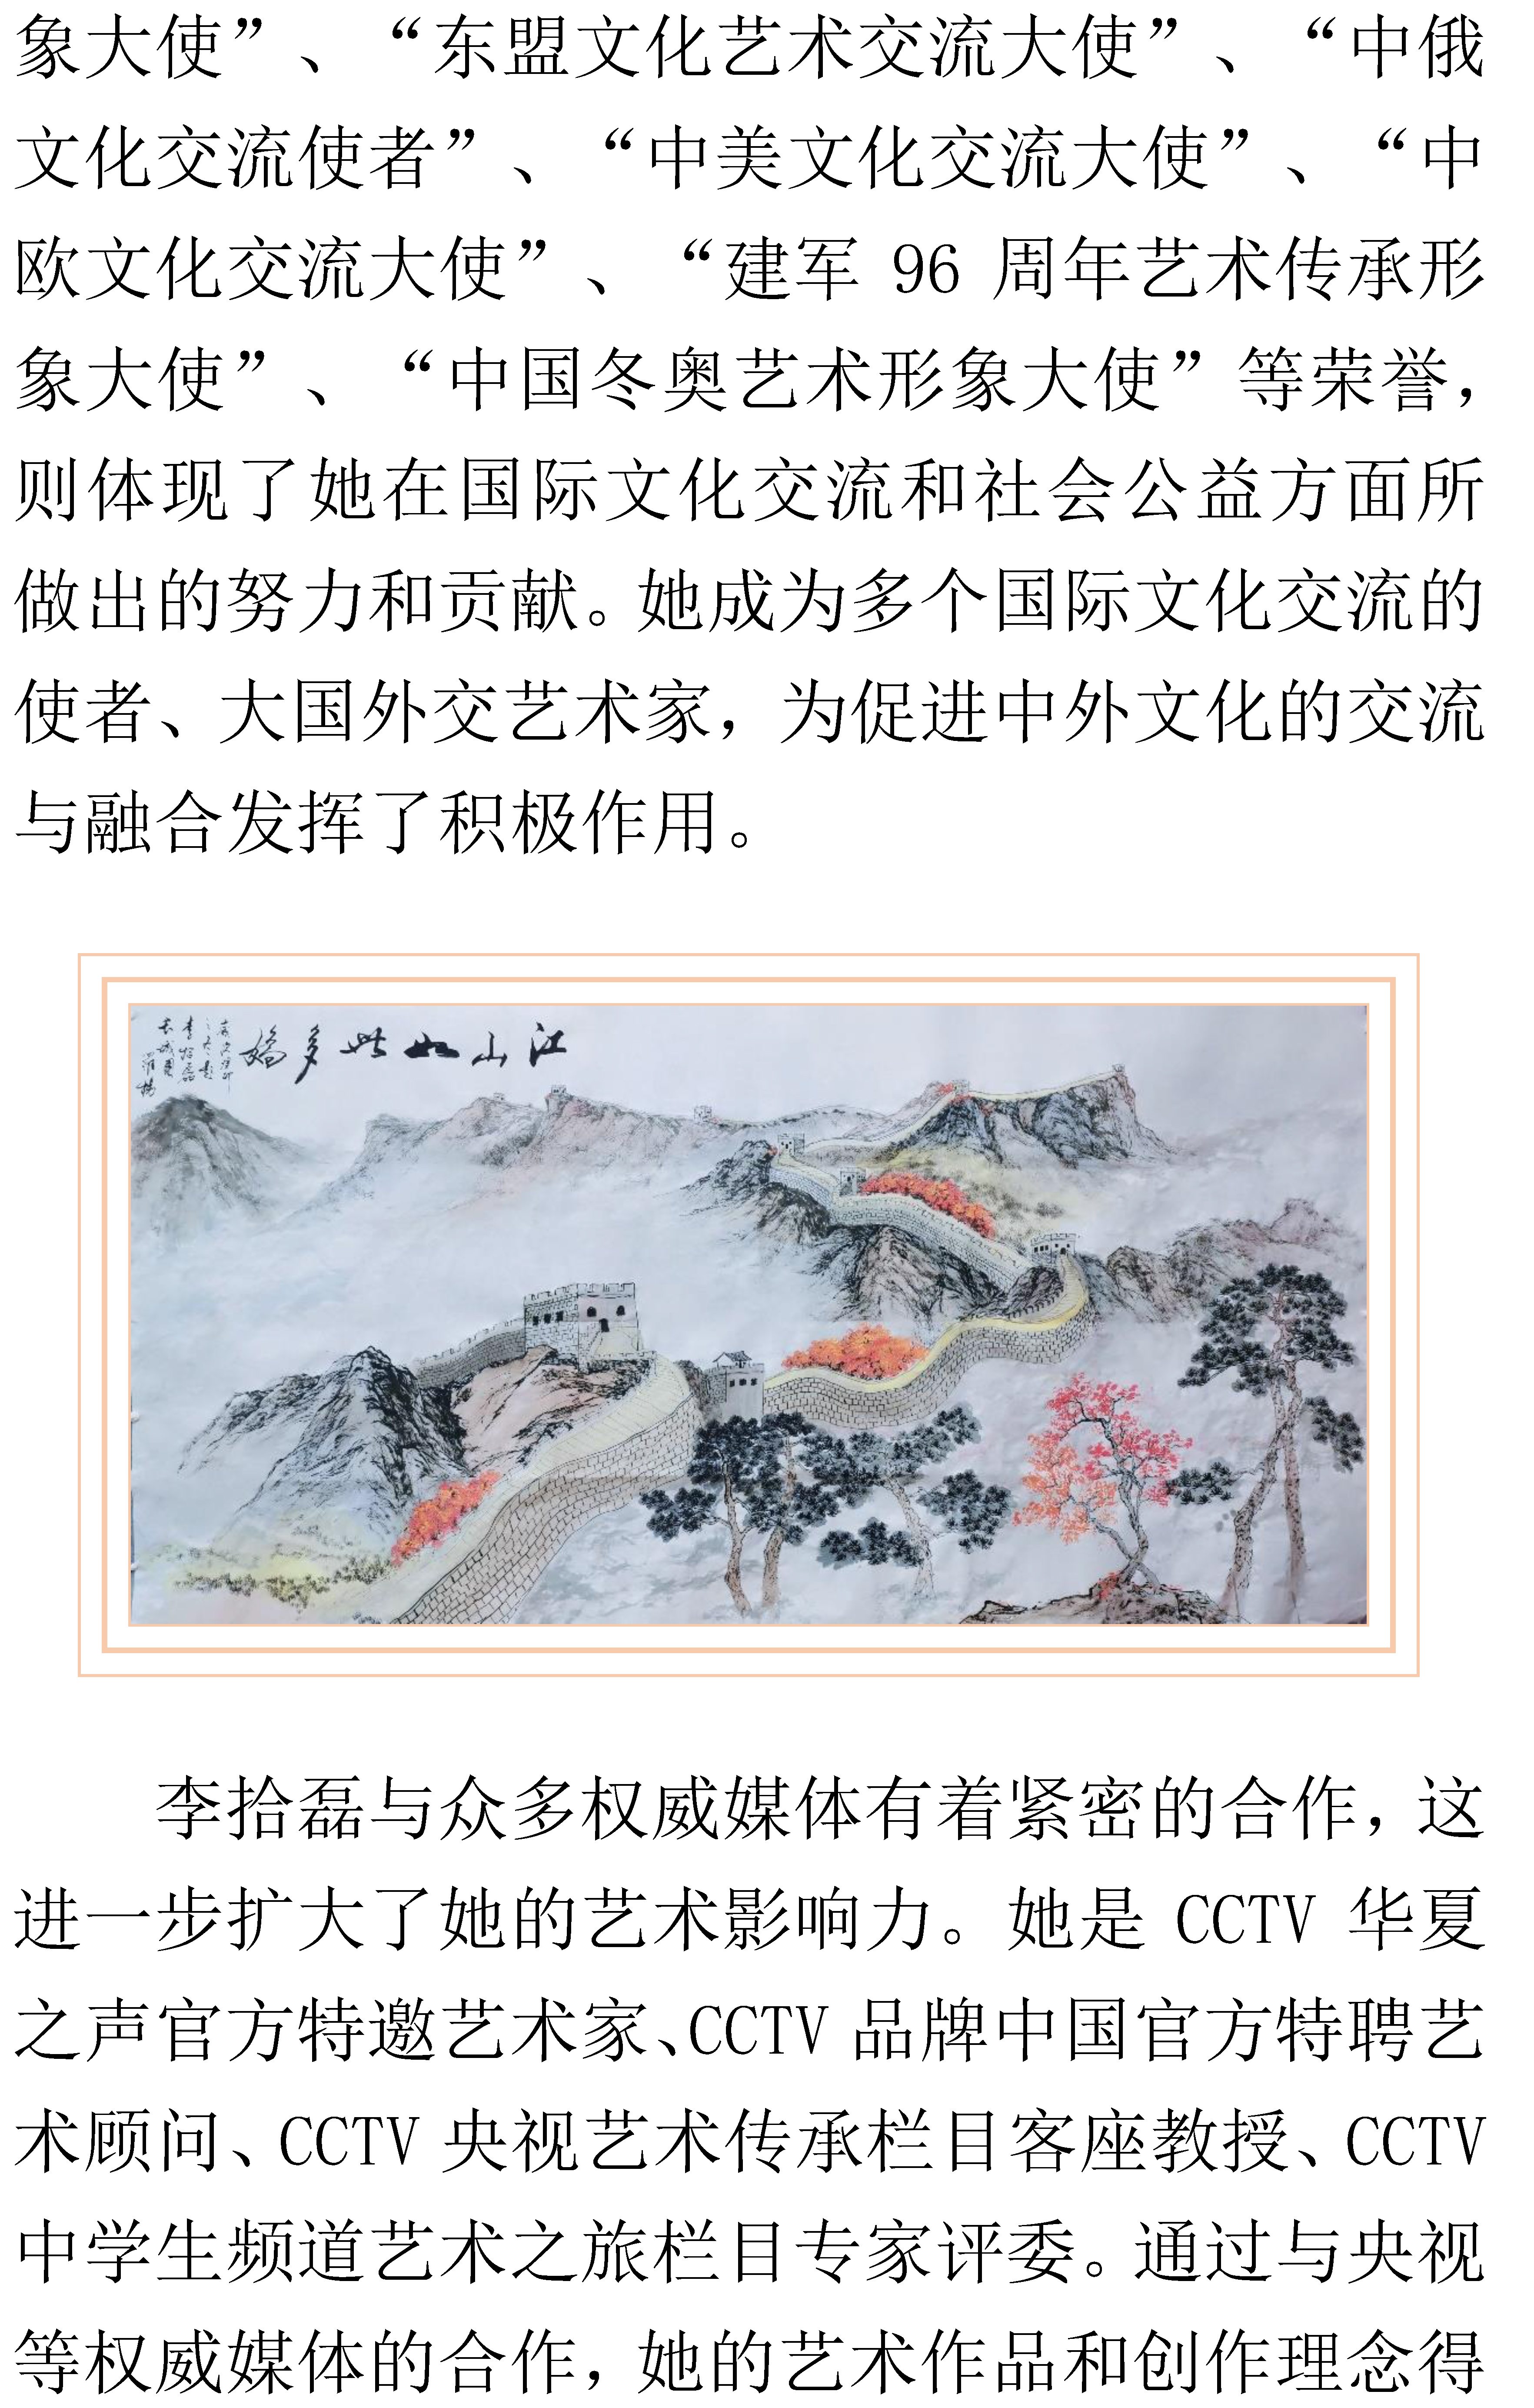 象大使”、“东盟文化艺术交流大使”、“中俄
文化交流使者”、“中美文化交流大使”、“中
欧文化交流大使”、“建军 96 周年艺术传承形
象大使”、“中国冬奥艺术形象大使”等荣誉，
则体现了她在国际文化交流和社会公益方面所
做出的努力和贡献。她成为多个国际文化交流的
使者、大国外交艺术家，为促进中外文化的交流
与融合发挥了积极作用。
江山如此多嬌
李拾磊
李拾磊与众多权威媒体有着紧密的合作，这
进一步扩大了她的艺术影响力。她是 CCTV 华夏
之声官方特邀艺术家、CCTV 品牌中国官方特聘艺
术顾问、CCTV 央视艺术传承栏目客座教授、CCTV
中学生频道艺术之旅栏目专家评委。通过与央视
等权威媒体的合作，她的艺术作品和创作理念得